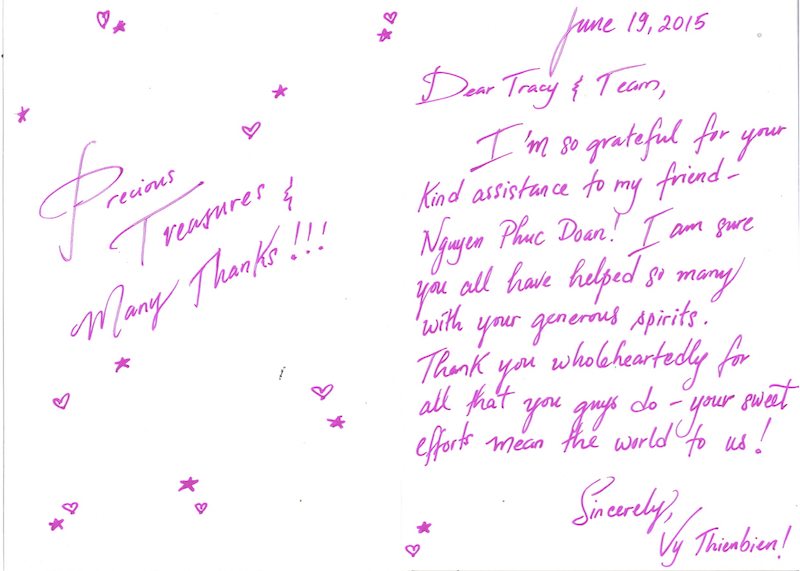 Precious
Treasures &
Many Thanks!!!
June 19, 2015
Dear Tracy & Team,
I'm so grateful for your
kind assistance to my friend -
Nguyen Phuc Doan! I am sure
you all have helped so many
with your generous spirits.
Thank you wholeheartedly for
all that you guys do - your sweet
efforts mean the world to us!
Sincerely,
Vy Thienbien!